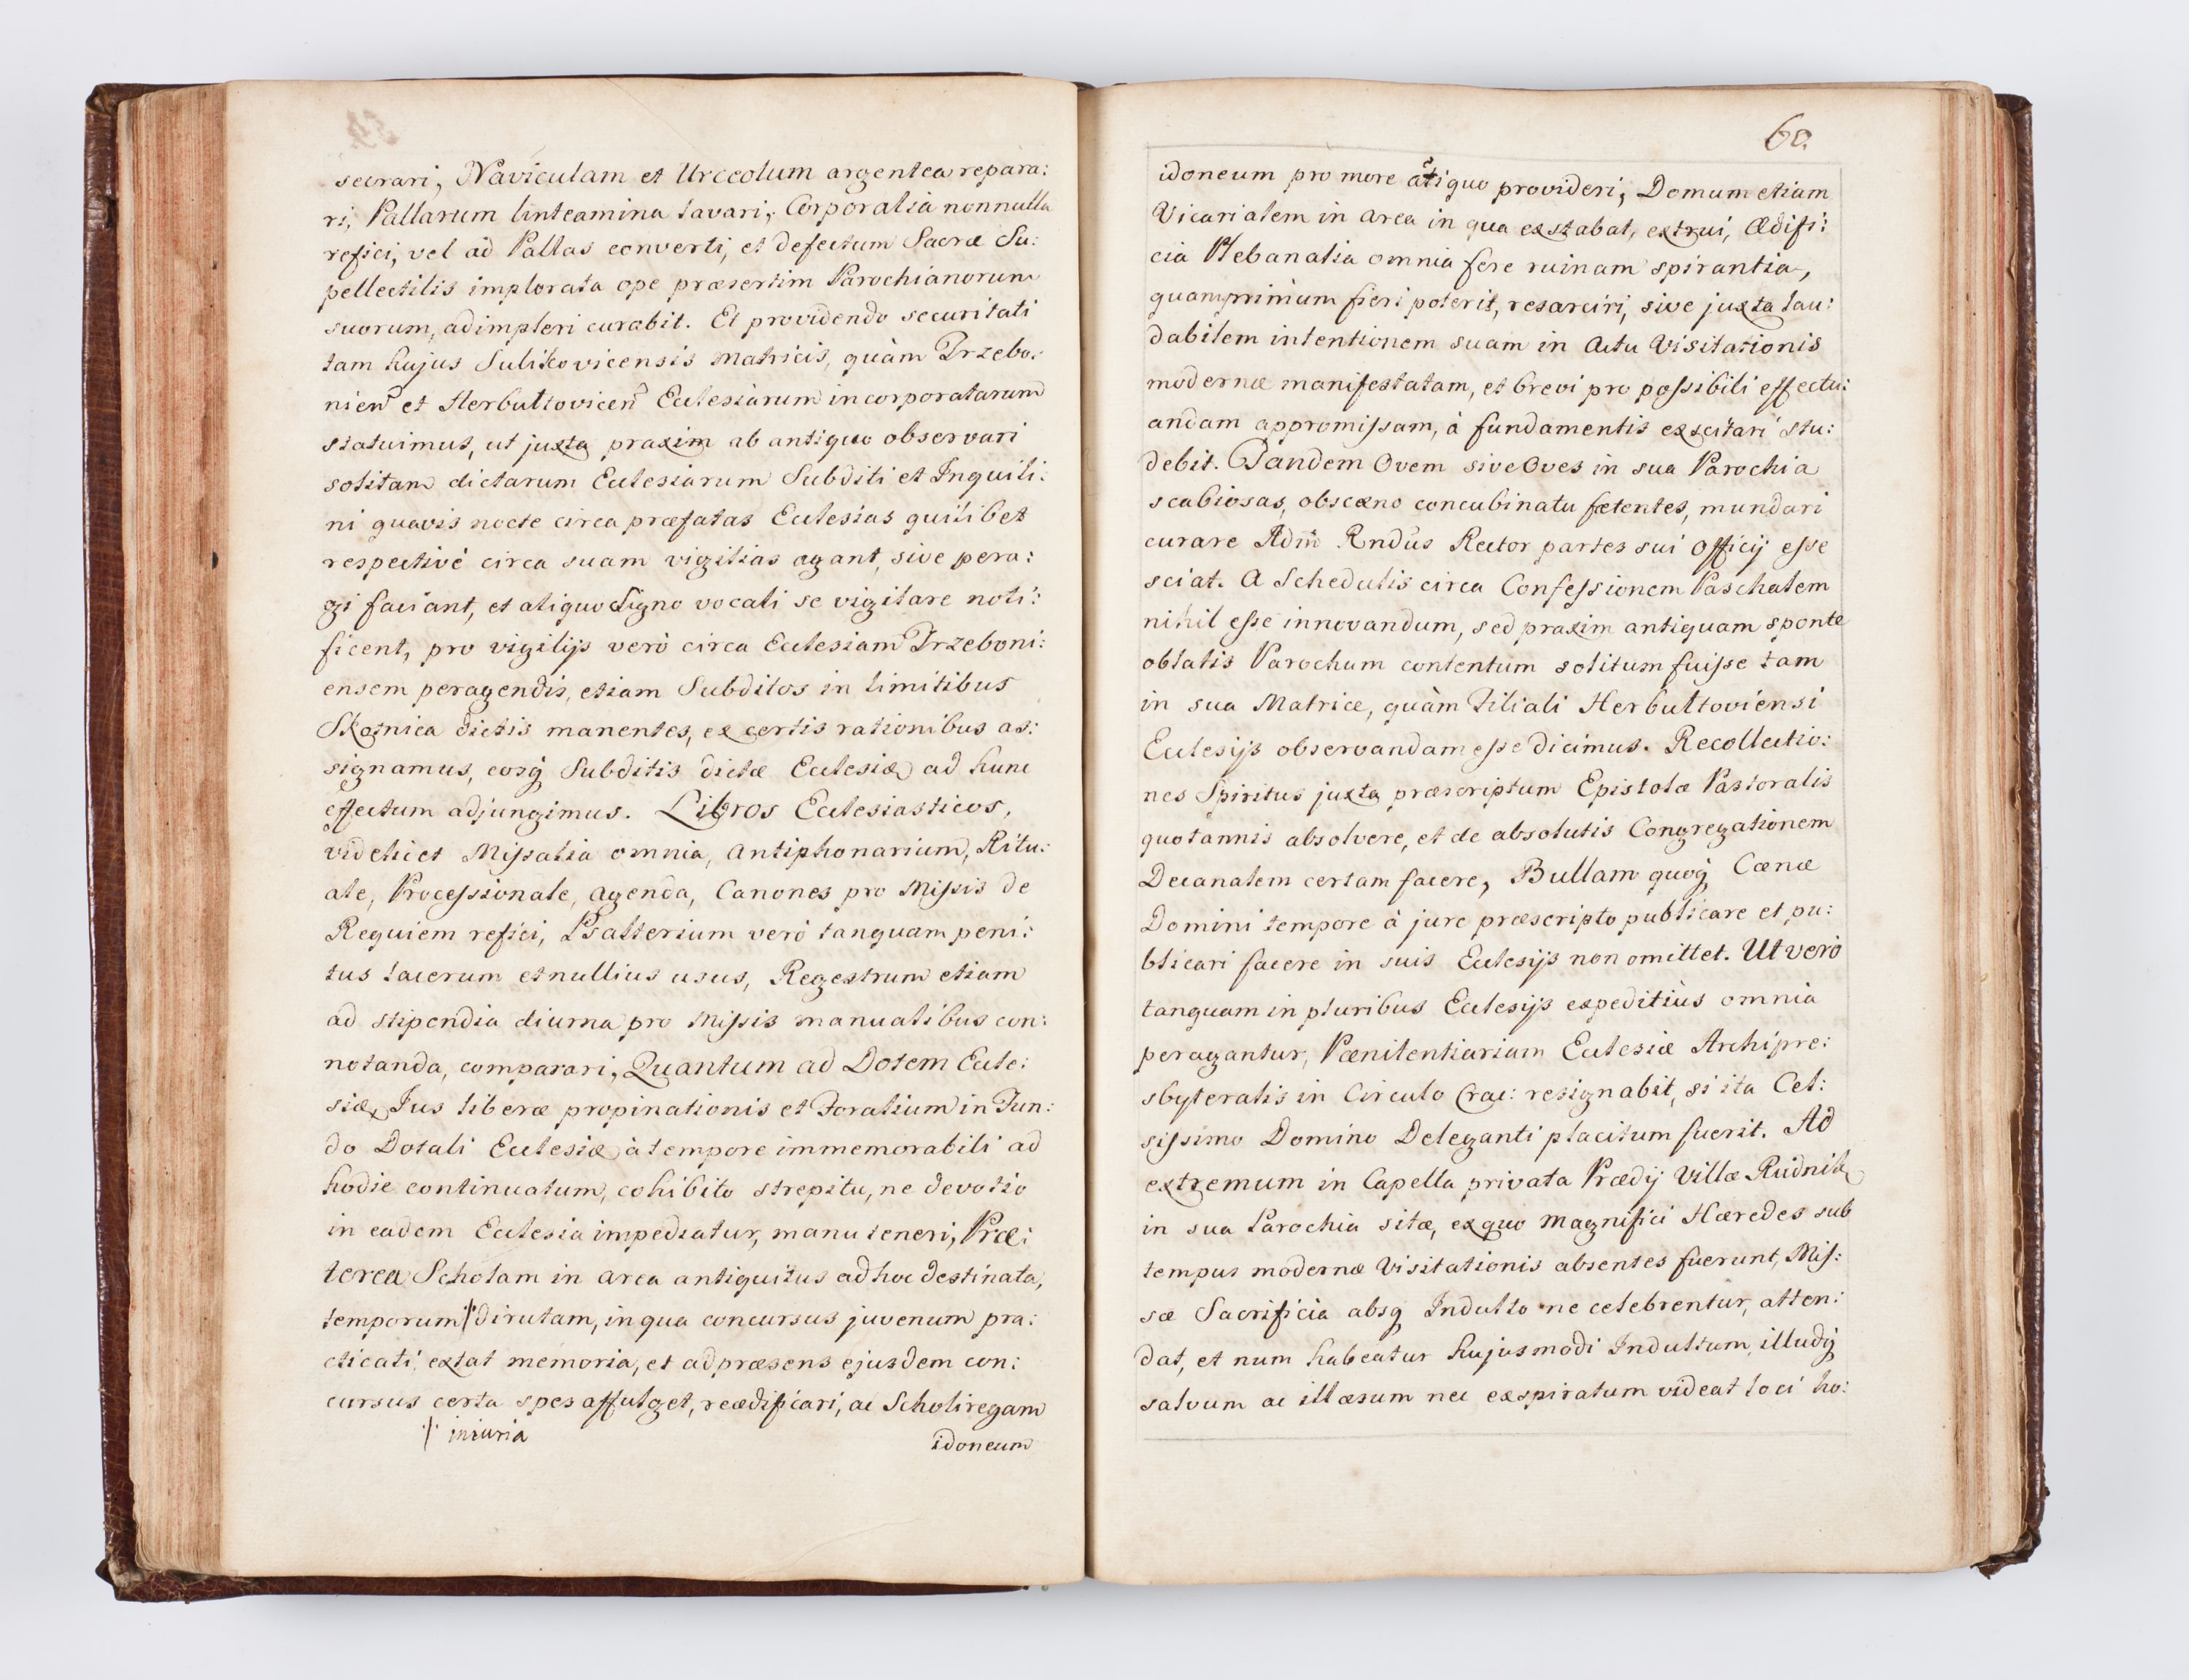 secrari, Naviculam et Urceolum argentea repara:
ri, Pallarum linteamina lavari, Corporalia nonnulla
refici, vel ad Pallas converti, et defectum Sacræ Su:
pellectilis implorata ope præsertim Parochianorum
suorum, adimpleri curabit. Et providendo securitati
tam hujus Sulikovicensis Matricis, quàm Trzebo:
nien̄ et Herbultovicen̄ Ecclesiarum incorporatarum
statuimus, ut juxta praxim ab antiquo observari
solitam dictarum Ecclesiarum Subditi et Inquili:
ni quavis nocte circa præfatas Ecclesias quilibet
respectivè circa suam vigilias agant, sive pera:
gi faciant, et aliquo Signo vocali se vigilare noti:
ficent, pro vigilijs verò circa Ecclesiam Trzeboni:
ensem peragendis, etiam Subditos in limitibus
Skotnica dictis manentes, ex certis rationibus as:
signamus, eosq́ Subditis dictæ Ecclesiæ ad hunc
effectum adjungimus. Libros Ecclesiasticos,
videlicet Missalia omnia, Antiphonarium, Ritu:
ale, Processionale, Agenda, Canones pro Missis de
Requiem refici, Psalterium verò tanquam peni:
tus lacerum et nullius usus, Regestrum etiam
ad stipendia diurna pro Missis manualibus con:
notanda, comparari, Quantum ad Dotem Eccle:
siæ, Jus liberæ propinationis et Foralium in Fun:
do Dotali Ecclesiæ à tempore immemorabili ad
hodie continuatum, cohibito strepitu, ne devotio
in eadem Ecclesia impediatur, manuteneri, Præ:
terea Scholam in area antiquitus ad hoc destinata,
temporum ⁒ dirutam, in qua concursus juvenum pra:
cticati, extat memoria, et ad præsens ejusdem con:
cursus certa spes affulget, reædificari, ac Scholiregam
⁒ iniuria
idoneum
60.
idoneum pro more ãtiquo provideri, Domum etiam
Vicarialem in area in qua exstabat, extrui, Ædifi:
cia Plebanalia omnia fere ruinam spirantia,
quamprimum fieri poterit, resarciri, sive juxta lau:
dabilem intentionem suam in Actu Visitationis
modernæ manifestatam, et brevi pro possibili effectu:
andam appromissam, à fundamentis exscitari stu:
debit. Tandem Ovem sive Oves in sua Parochia
scabiosas, obscæno concubinatu fætentes, mundari
curare Adm̄ Rndūs Rector partes sui Officij esse
sciat. A Schedulis circa Confessionem Paschalem
nihil esse innovandum, sed praxim antiquam sponte
oblatis Parochum contentum solitum fuisse tam
in sua Matrice, quàm Filiali Herbultoviensi
Ecclesijs observandam esse dicimus. Recollectio:
nes Spiritus juxta præscriptum Epistolæ Pastoralis
quotannis absolvere, et de absolutis Congregationem
Decanalem certam facere, Bullam quoq́ Cænæ
Domini tempore à jure præscripto publicare et pu:
blicari facere in suis Ecclesijs non omittet. Ut verò
tanquam in pluribus Ecclesijs expeditiùs omnia
peragantur, Pænitentiariam Ecclesiæ Archipre:
sbyteralis in Circulo Crac: resignabit, si ita Cel:
sissimo Domino Deleganti placitum fuerit. Ad
extremum in Capella privata Prædij Villæ Rudnik
in sua Parochia sitæ, ex quo Magnifici Hæredes sub
tempus modernæ Visitationis absentes fuerunt, Mis:
sæ Sacrificia absq́ Indulto ne celebrentur, atten:
dat, et num habeatur hujusmodi Indultum, illudq́
salvum ac illæsum nec exspiratum videat loci ho: